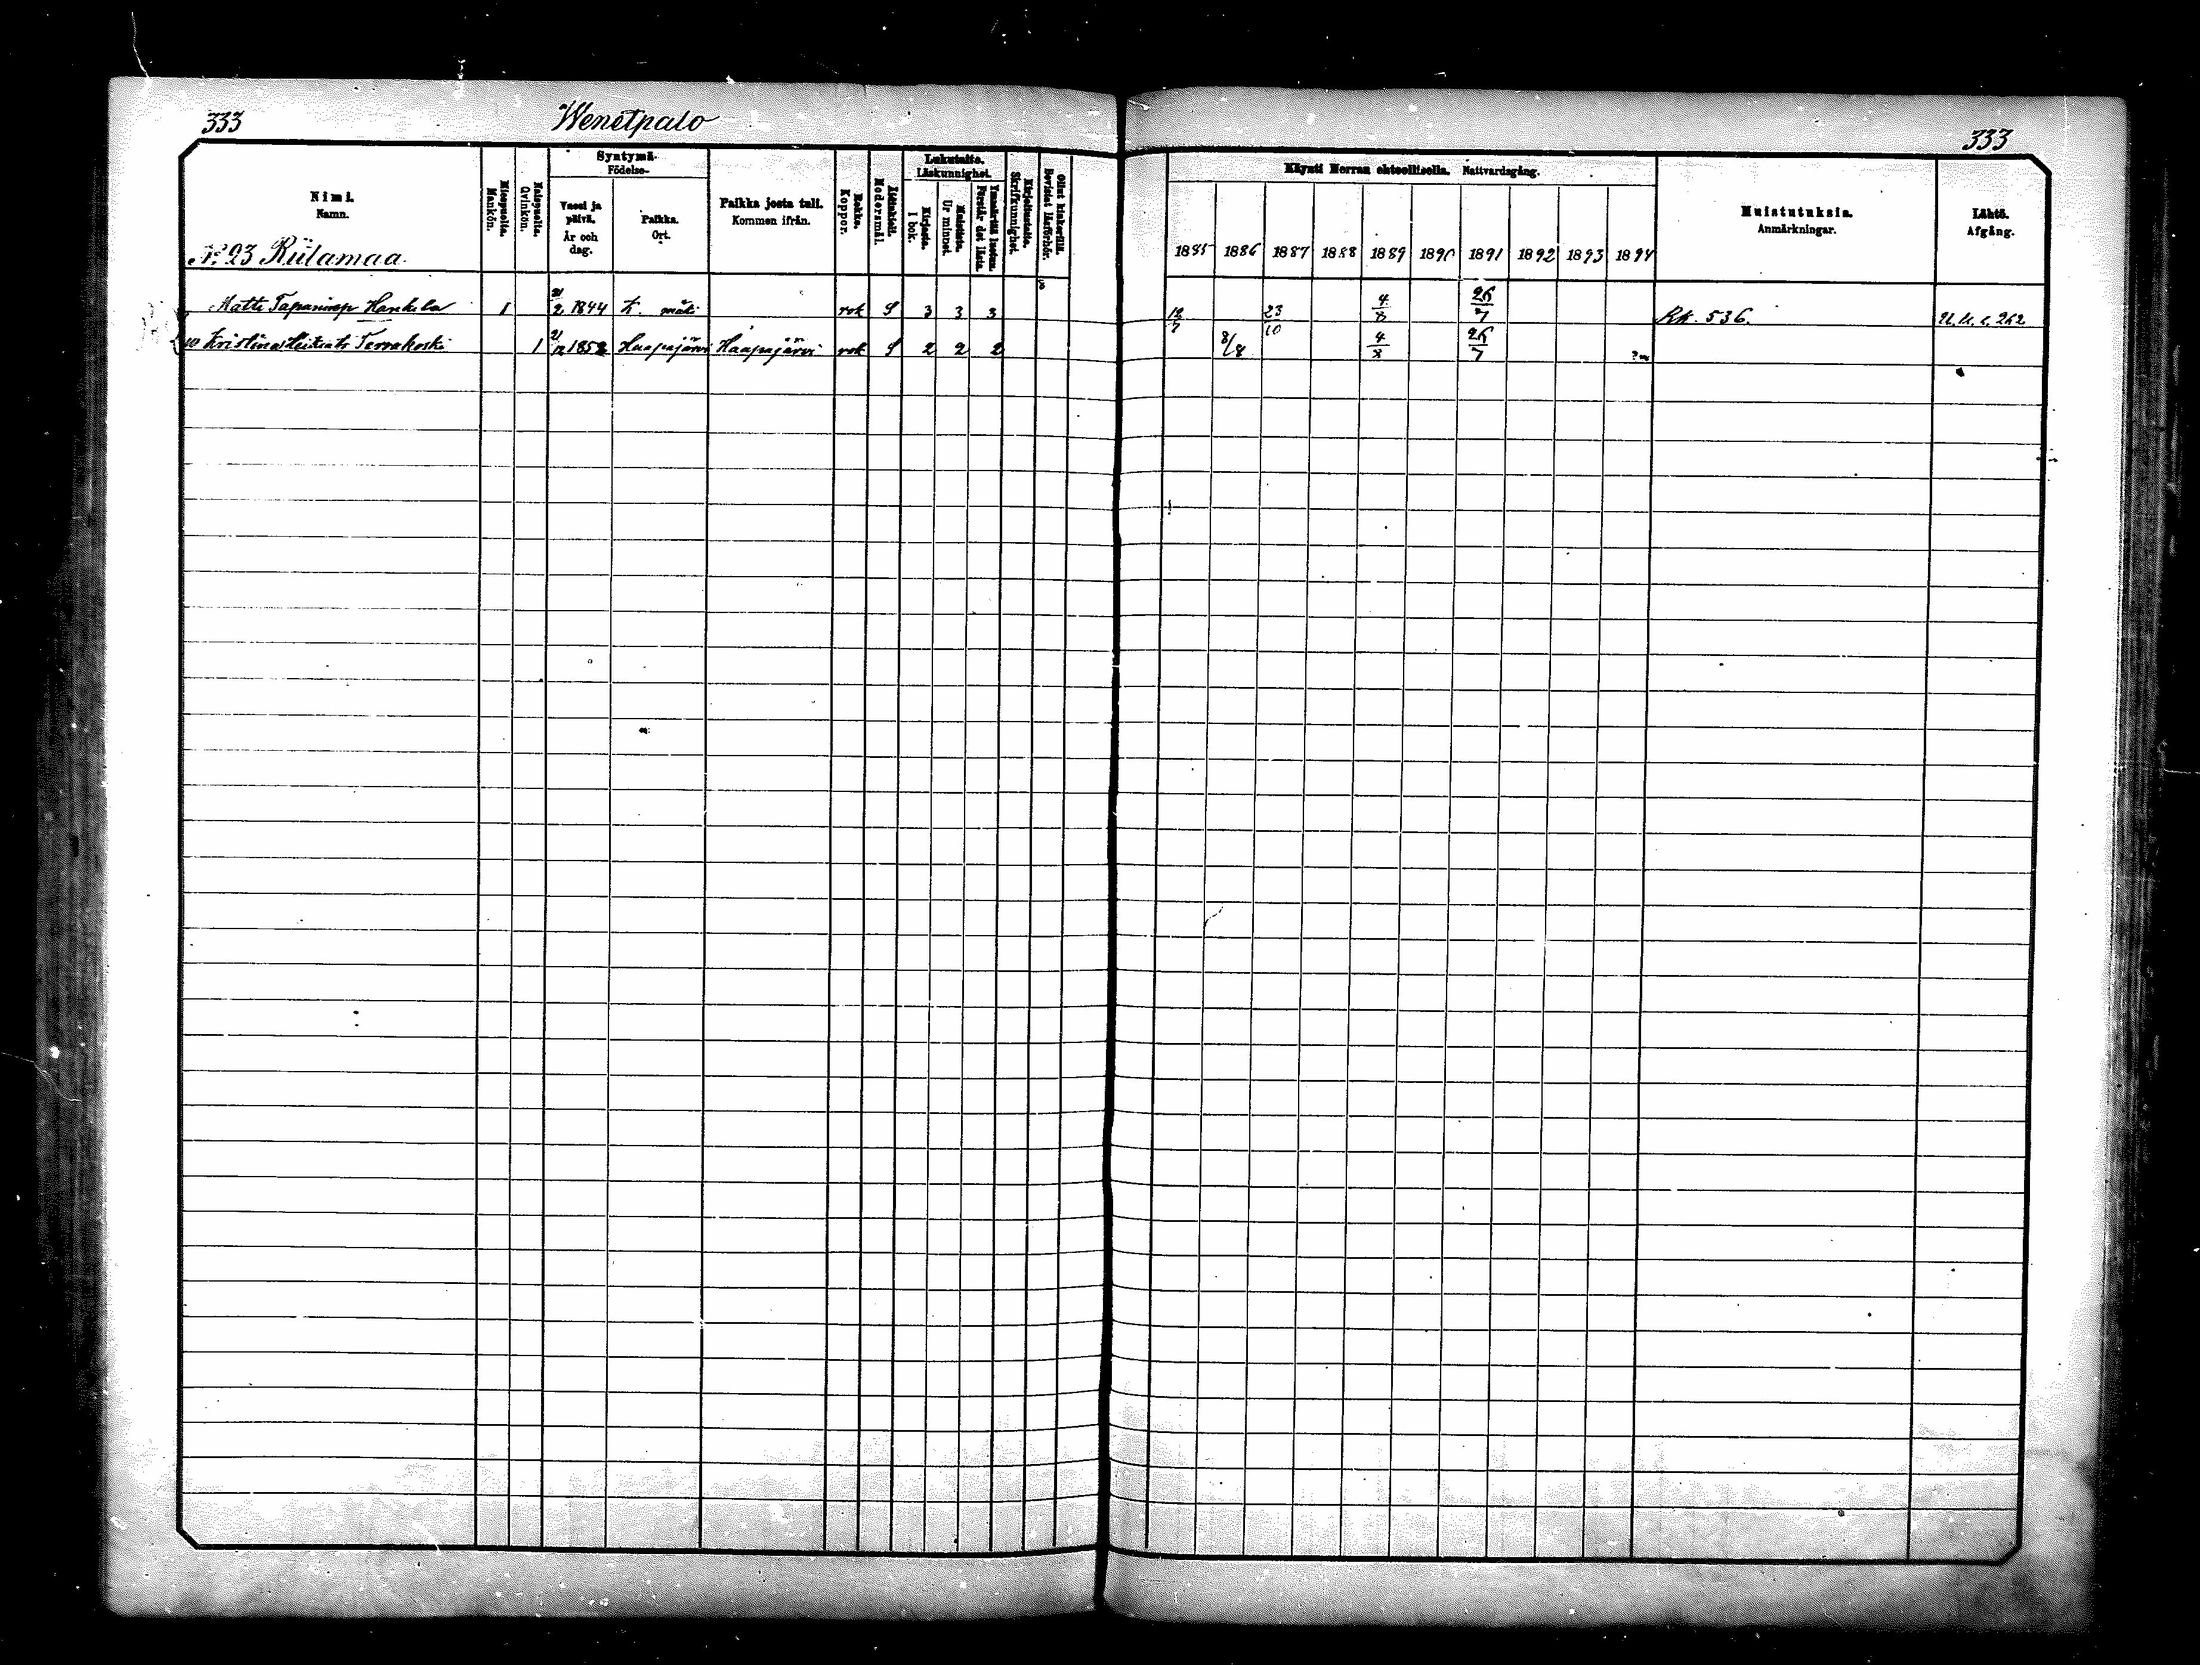 333 Wenetpalo 333
Nimi.
Namn.
Miespuolia.
Mankön.
Naispuolia.
Qvinkön.
Syntymä-
Födelse-
Vuosi ja päivä.
År och dag.
Paikka.
Ort.
Paikka josta tuli.
Kommen ifrån.
Rokko.
Koppor.
Äitinkieli.
Modersmål.
Lukutaito.
Läskunnighet.
Kirjasta.
I bok.
Muistista.
Ur minnet.
Ymmärtää luetun.
Förstår det lästa.
Kirjoitustaito.
Skrifkunnighet.
Ollut kinkerillä.
Bevistat läsförhör.
Käynti Herran ehtoollisella. Nattvardsgång.
1885 1886 1887 1888 1889 1890 1891 1892 1893 1894
Muistutuksia.
Anmärkningar.
Lähtö.
Afgång.
No 23 Riilamaa.
Matti Tapaninp Hankila 1 2 1844 K. mäki rok S 3 3 3 12/7 23/10 4/8 26/7 Rk. 536. U. k. s. 262
Kristina Tervakoski 1 21/12 1852 Haapajärvi Haapajärvi rok S 2 2 2 8/8 4/8 26/7